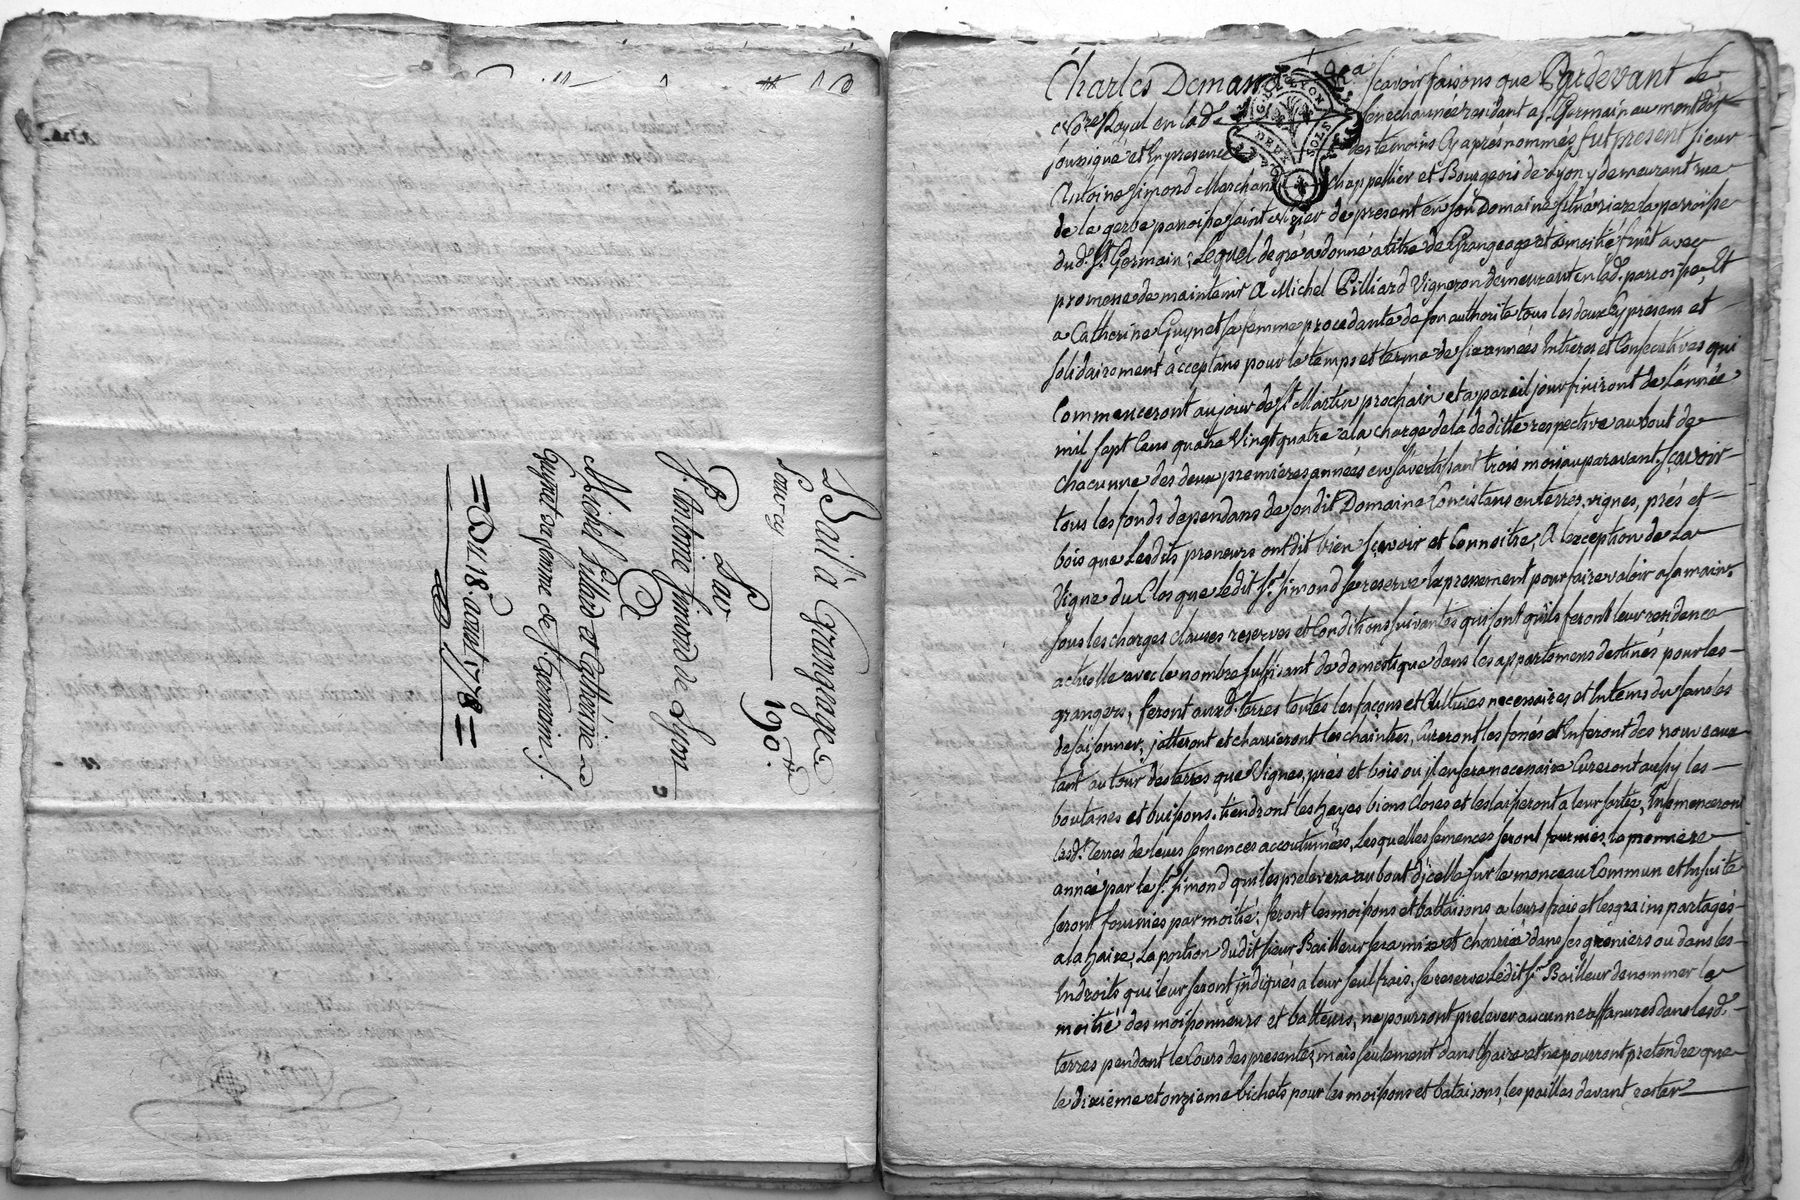 Bail a Grangeage
Pour 6 ... 196.#
Par
S.r Antoine Simond de Lyon
A
Michel Pilliard et Catherine
Guynet sa femme de S.t Germain.
= Du 18 aout 1778 =
Charles Deman scavoir faisons que Pardevant le
No.re Royal en lad. senechaussée residant a S.t Germain au mont d'or
soussigné et En presence des temoins Cy aprés nommés, fut present sieur
Antoine Simond Marchand Chappellier et Bourgeois de Lyon y demeurant rue
de la gerbe paroisse saint nizier de present en son Domaine situé riere la paroisse
dud. S.t Germain; Lequel de gré a donné a titre de Grangeage et a moitié fruit avec
promesse de maintenir A Michel Pilliard Vigneron demeurant en lad. paroisse, Et
a Catherine Guynet sa femme procedante de son authorité tous les deux Cy presens et
solidairement acceptans pour le temps et terme de six années Entieres et Consecutives qui
Commenceront au jour de S.t Martin prochain et a pareil jour finiront de L'année
mil sept Cens quatre Vingt quatre a la charge de la deditte respective au bout de
chacunne des deux premieres années en s'avertissant trois mois auparavant. scavoir
tous les fonds dependans de sondit Domaine Concistans en terres, vignes, prés et
bois que Lesdits preneurs ont dit bien sçavoir et Connoitre, A L'exception de La
Vigne du Clos que Ledit S.r Simond se reserve Expressement pour faire valoir a sa main.
sous les charges clauses reserves et Conditions suivantes qui sont qu'ils feront leur residence
actuelle avec le nombre suffisant de domestique dans les appartemens destinés pour les
grangers, feront auxd. terres toutes les façons et Cultures necessaires et En tems du sans les
desaisonner, jetteront et charrieront les chaintres, Cureront les fossés et En feront des nouveaux
tant au tour des terres que Vignes, prés et bois ou il en sera necessaire Cureront aussy les
boutasses et buissons. tiendront les hayes biens closes et les laisseront a leur sortie, Ensemenceront
lesd. Terres de leurs semences accoutumées, Lesquelles semences seront fournies la premiere
année par le S.r Simond qu'il les prelevera au bout d'icelle sur le monceau Commun et Ensuite
seront fournies par moitié; feront les moissons et battaisons a leurs frais et les grains partagés
a la haire, La portion dudit sieur Bailleur sera mise et charriée dans ses greniers ou dans les
Endroits qui leur seront jndiqués a leur seul frais, se reserve Ledit S.r Bailleur de nommer la
moitié des moissonneurs et batteurs, ne pourront prelever aucunne affanures dans lesd.
terres pendant le Cours des presentes, mais seulement dans l'haire et ne pourront pretendre que
le dixieme et onzieme bichets pour les moissons et bataisons, les pailles devant rester